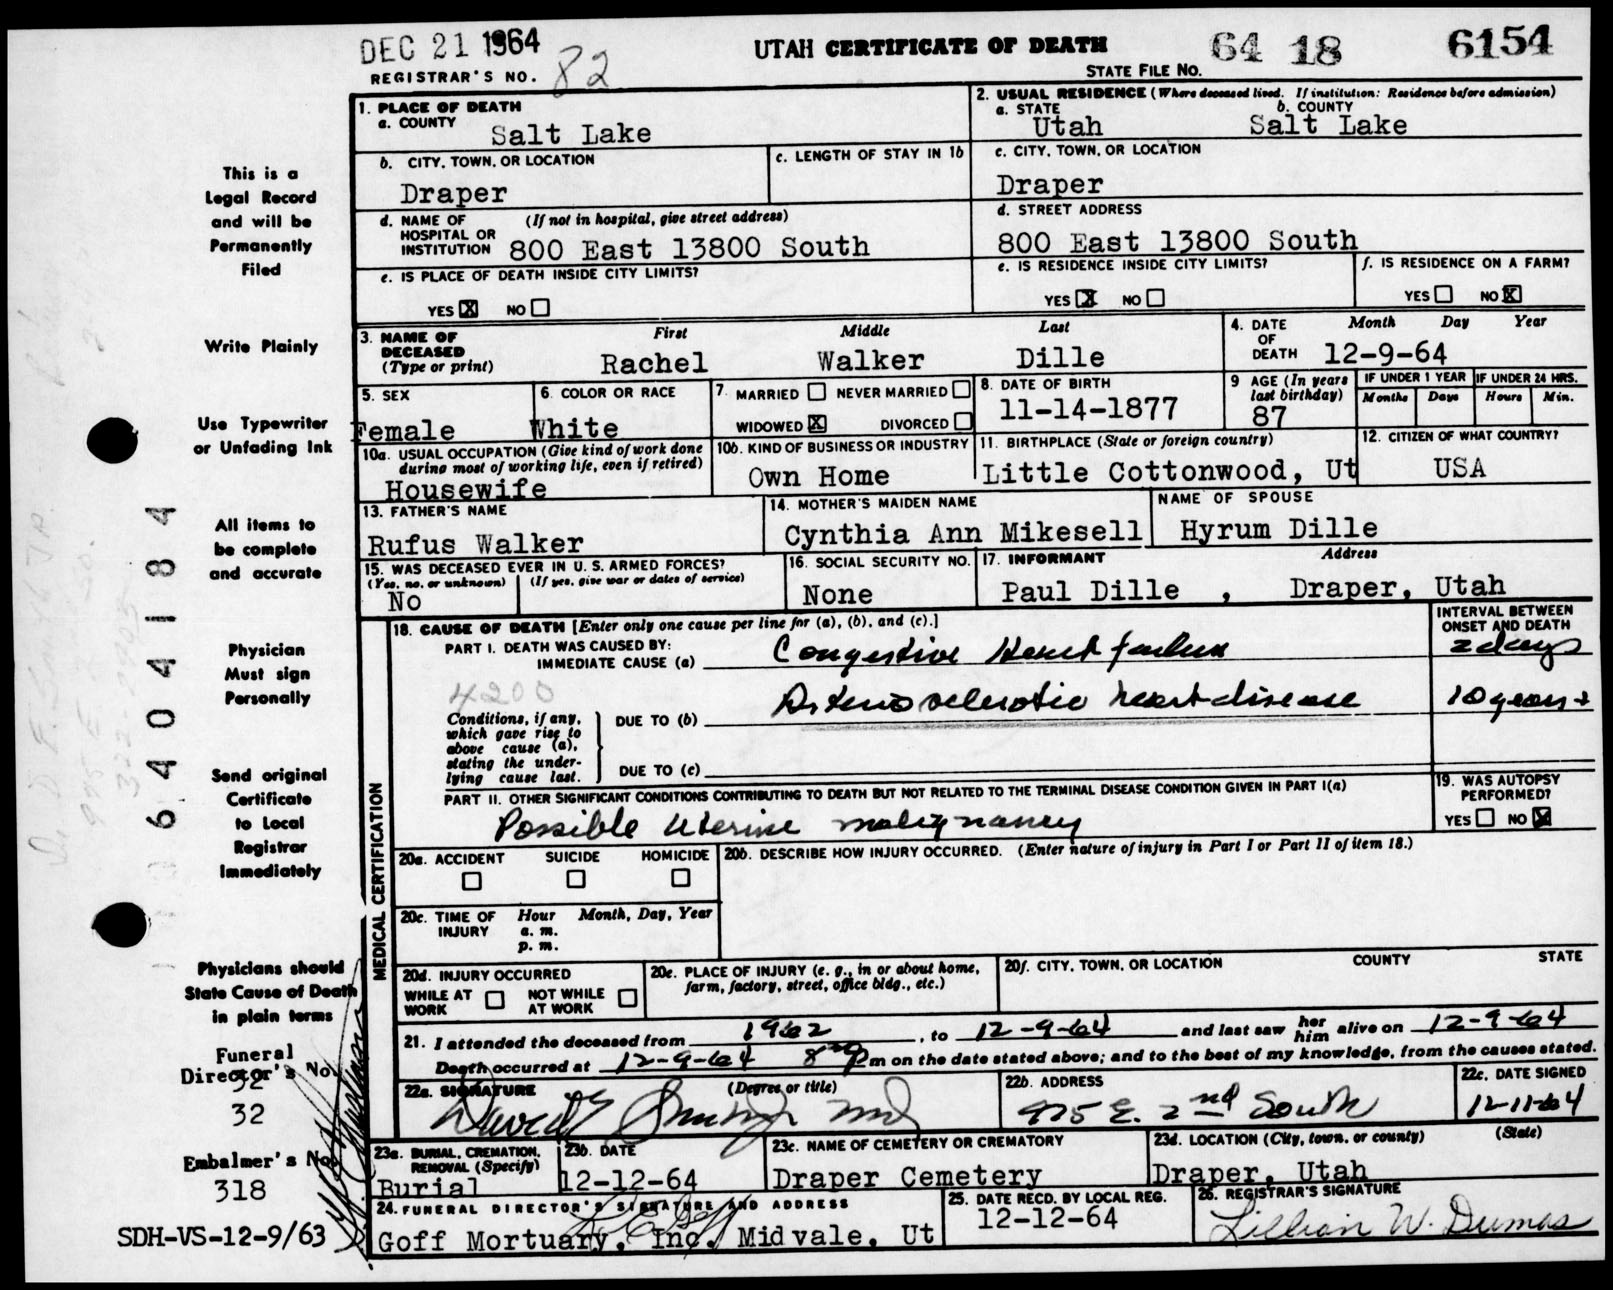 DEC 21 1964
UTAH CERTIFICATE OF DEATH
64 18 6154
REGISTRAR'S NO. 82
STATE FILE NO.
1. PLACE OF DEATH
a. COUNTY
Salt Lake
2. USUAL RESIDENCE (Where deceased lived. If institution: Residence before admission)
a. STATE b. COUNTY
Utah Salt Lake
b. CITY, TOWN, OR LOCATION
Draper
c. LENGTH OF STAY IN 1b
c. CITY, TOWN, OR LOCATION
Draper
d. NAME OF HOSPITAL OR INSTITUTION (If not in hospital, give street address)
800 East 13800 South
d. STREET ADDRESS
800 East 13800 South
e. IS PLACE OF DEATH INSIDE CITY LIMITS?
YES X NO
e. IS RESIDENCE INSIDE CITY LIMITS?
YES X NO
f. IS RESIDENCE ON A FARM?
YES NO X
3. NAME OF DECEASED (Type or print)
First Middle Last
Rachel Walker Dille
4. DATE OF DEATH
Month Day Year
12-9-64
5. SEX
Female
6. COLOR OR RACE
White
7. MARRIED NEVER MARRIED
WIDOWED X DIVORCED
8. DATE OF BIRTH
11-14-1877
9 AGE (In years last birthday)
87
IF UNDER 1 YEAR
Months Days
IF UNDER 24 HRS.
Hours Min.
10a. USUAL OCCUPATION (Give kind of work done during most of working life, even if retired)
Housewife
10b. KIND OF BUSINESS OR INDUSTRY
Own Home
11. BIRTHPLACE (State or foreign country)
Little Cottonwood, Ut
12. CITIZEN OF WHAT COUNTRY?
USA
13. FATHER'S NAME
Rufus Walker
14. MOTHER'S MAIDEN NAME
Cynthia Ann Mikesell
NAME OF SPOUSE
Hyrum Dille
15. WAS DECEASED EVER IN U. S. ARMED FORCES?
(Yes, no, or unknown) (If yes, give war or dates of service)
No
16. SOCIAL SECURITY NO.
None
17. INFORMANT Address
Paul Dille , Draper, Utah
MEDICAL CERTIFICATION
18. CAUSE OF DEATH [Enter only one cause per line for (a), (b), and (c).]
INTERVAL BETWEEN ONSET AND DEATH
PART I. DEATH WAS CAUSED BY:
IMMEDIATE CAUSE (a) Congestive Heart failure 2 days
4200
Conditions, if any, which gave rise to above cause (a), stating the underlying cause last.
DUE TO (b) Arteriosclerotic heart disease 10 years +
DUE TO (c)
PART II. OTHER SIGNIFICANT CONDITIONS CONTRIBUTING TO DEATH BUT NOT RELATED TO THE TERMINAL DISEASE CONDITION GIVEN IN PART I(a)
Possible Uterine malignancy
19. WAS AUTOPSY PERFORMED?
YES NO X
20a. ACCIDENT SUICIDE HOMICIDE
20b. DESCRIBE HOW INJURY OCCURRED. (Enter nature of injury in Part I or Part II of item 18.)
20c. TIME OF INJURY Hour Month, Day, Year
a. m.
p. m.
20d. INJURY OCCURRED
WHILE AT WORK NOT WHILE AT WORK
20e. PLACE OF INJURY (e. g., in or about home, farm, factory, street, office bldg., etc.)
20f. CITY, TOWN, OR LOCATION COUNTY STATE
21. I attended the deceased from 1962, to 12-9-64 and last saw her him alive on 12-9-64
Death occurred at 12-9-64 8 Pm on the date stated above; and to the best of my knowledge, from the causes stated.
22a. SIGNATURE (Degree or title)
David Smith MD
22b. ADDRESS
975 E. 2nd South
22c. DATE SIGNED
12-11-64
23a. BURIAL, CREMATION, REMOVAL (Specify)
Burial
23b. DATE
12-12-64
23c. NAME OF CEMETERY OR CREMATORY
Draper Cemetery
23d. LOCATION (City, town, or county) (State)
Draper, Utah
24. FUNERAL DIRECTOR'S SIGNATURE AND ADDRESS
Goff Mortuary, Inc. Midvale, Ut
25. DATE RECD. BY LOCAL REG.
12-12-64
26. REGISTRAR'S SIGNATURE
Lillian W. Dumas
This is a
Legal Record
and will be
Permanently
Filed
Write Plainly
Use Typewriter
or Unfading Ink
All items to
be complete
and accurate
Physician
Must sign
Personally
Send original
Certificate
to Local
Registrar
Immediately
Physicians should
State Cause of Death
in plain terms
Funeral
Director's No.
32
32
Embalmer's No.
318
SDH-VS-12-9/63
64041184